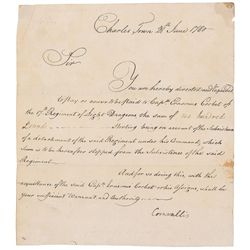 Charles Town 28th June 1780
Sir
You are hereby directed and required
to Pay or cause to be Paid to Captn
the 17th Regiment of Light Dragoons the sum of
Sterling being on account of the Subsistence
of a detachment of the said Regiment under his Command, which
Sum is to be hereafter stopped from the Subsistence of the said
Regiment.
And for so doing this, with the
acquittance of the said Captn or his Assigns, shall be
your sufficient Warrant and Authority
Cornwallis